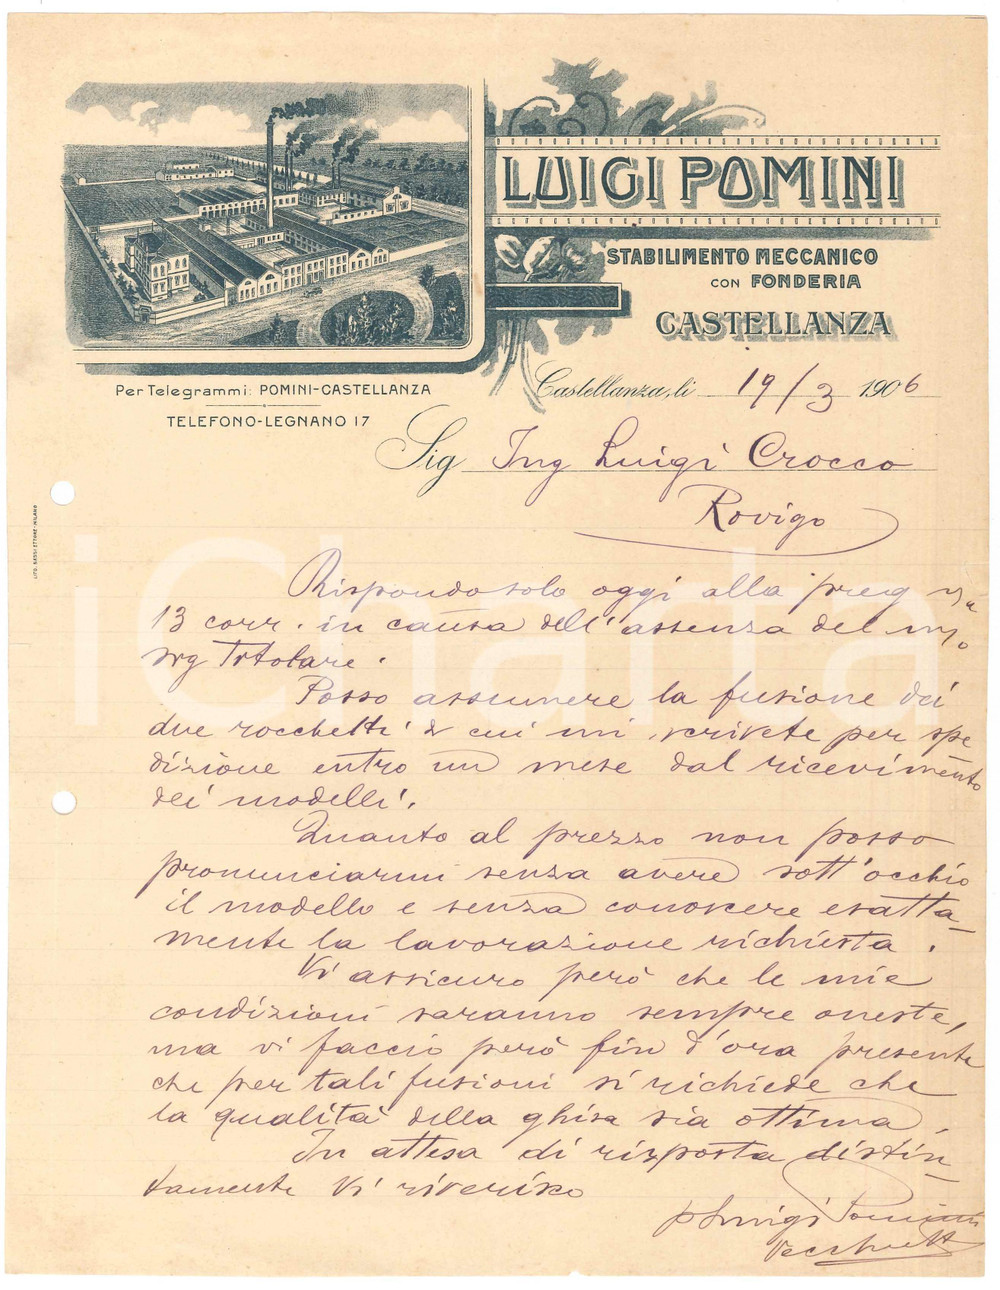 LUIGI POMINI
STABILIMENTO MECCANICO
CON FONDERIA
CASTELLANZA
Per Telegrammi: POMINI-CASTELLANZA
TELEFONO-LEGNANO 17
Castellanza, li 19/3 1906
Sig Ing Luigi Crocco
Rovigo
LITO. BASSI ETTORE-MILANO
iCharta
Rispondo solo oggi alla preg vra
13 corr. in causa dell'assenza del mio
sig Titolare.
Posso assumere la fusione dei
due rocchetti di cui mi scrivete per spe
dizione entro un mese dal ricevimento
dei modelli.
Quanto al prezzo non posso
pronunciarmi senza avere sott'occhio
il modello e senza conoscere esatta-
mente la lavorazione richiesta.
Vi assicuro però che le mie
condizioni saranno sempre oneste,
ma vi faccio però fin d'ora presente
che per tali fusioni si richiede che
la qualità della ghisa sia ottima.
In attesa di risposta distin-
tamente Vi riverisco
p Luigi Pomini